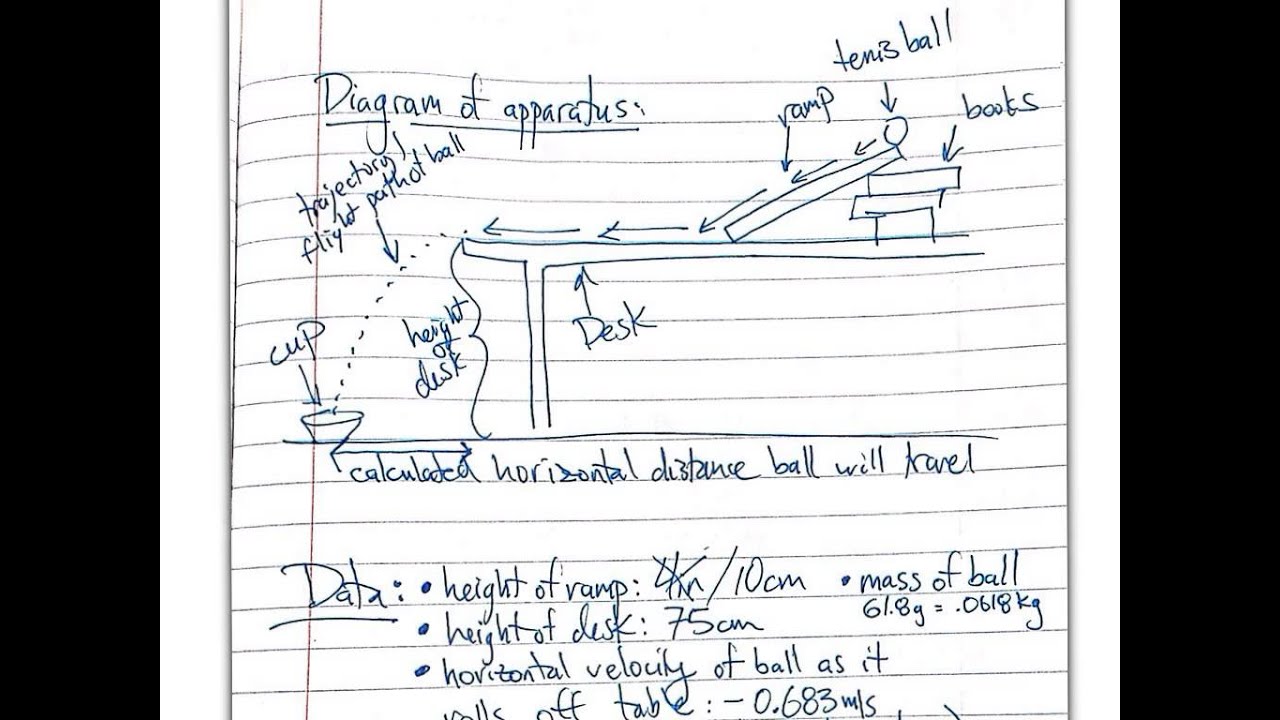 tenis ball
Diagram of apparatus:
ramp
books
trajectory/
flight path of ball
cup
height
of
desk
Desk
calculated horizontal distance ball will travel
Data: • height of ramp: /10cm • mass of ball
61.8g = .0618kg
• height of desk: 75cm
• horizontal velocity of ball as it
rolls off table: -0.683m/s